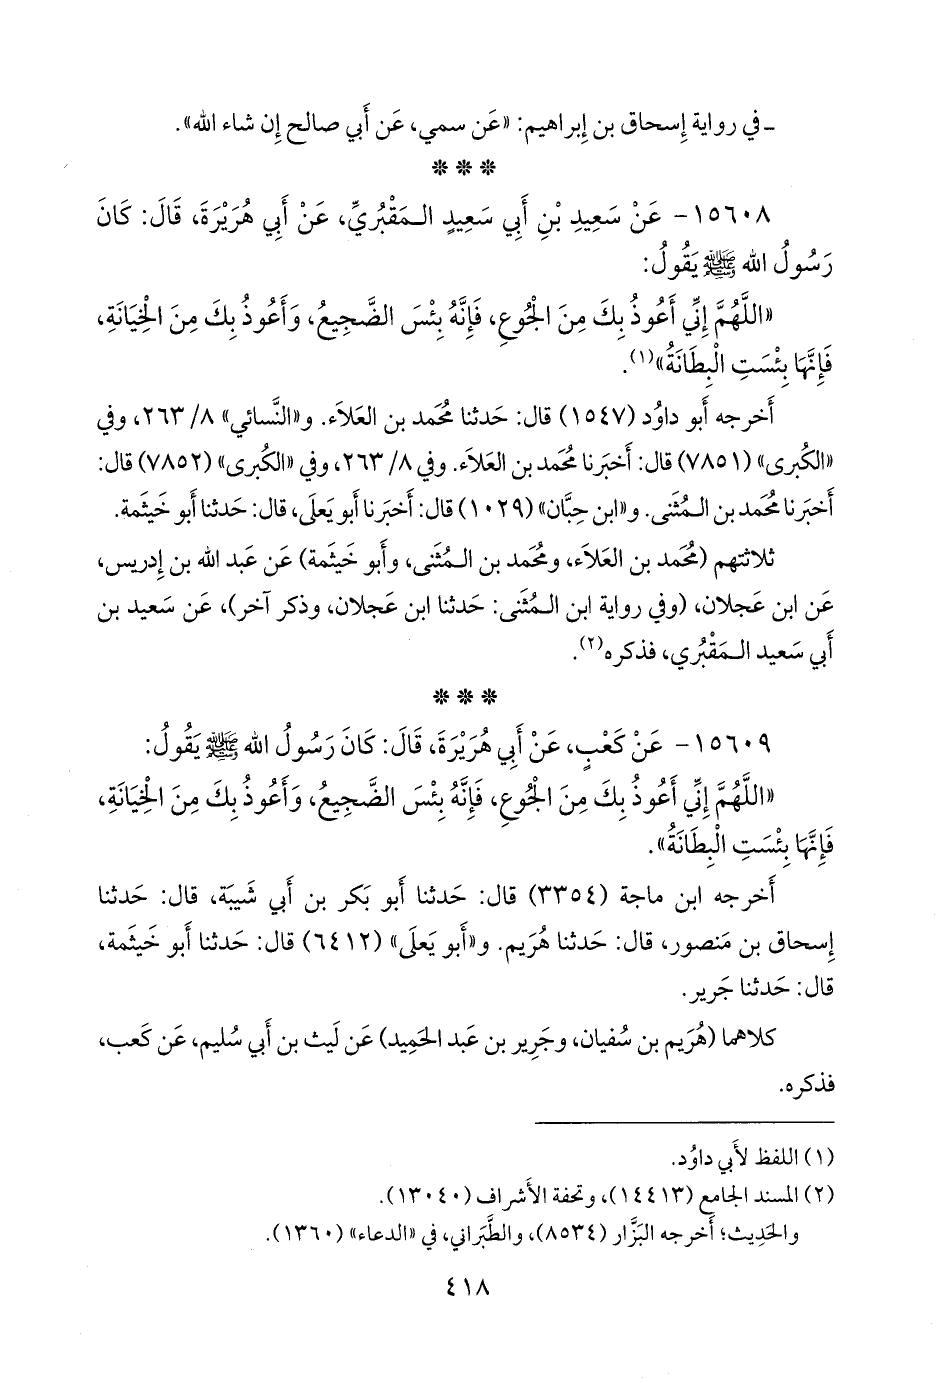 ـ في رواية إسحاق بن إبراهيم: «عَن سمي، عَن أَبي صالح إن شاء الله».
* * *
١٥٦٠٨ - عَنْ سَعِيدِ بْنِ أَبِي سَعِيدٍ الـمَقْبُرِيِّ، عَنْ أَبِي هُرَيْرَةَ، قَالَ: كَانَ
رَسُولُ الله ﷺ يَقُولُ:
«اللَّهُمَّ إِنِّي أَعُوذُ بِكَ مِنَ الْجُوعِ، فَإِنَّهُ بِئْسَ الضَّجِيعُ، وَأَعُوذُ بِكَ مِنَ الْخِيَانَةِ،
فَإِنَّهَا بِئْسَتِ الْبِطَانَةُ»(١).
أَخرجه أَبو داوُد (١٥٤٧) قال: حَدثنا مُحَمد بن العَلَاَء. و«النَّسائي» ٨/ ٢٦٣، وفي
«الكُبرى» (٧٨٥١) قال: أَخبَرنا مُحَمد بن العَلاَء. وفي ٨/ ٢٦٣، وفي «الكُبرى» (٧٨٥٢) قال:
أَخبَرنا مُحَمد بن الـمُثنى. و«ابن حِبَّان» (١٠٢٩) قال: أَخبَرنا أَبو يَعلَى، قال: حَدثنا أَبو خَيثَمة.
ثلاثتهم (مُحَمد بن العَلاَء، ومُحَمد بن الـمُثَنى، وأَبو خَيثمة) عَن عَبد الله بن إِدريس،
عَن ابن عَجلان، (وفي رواية ابن الـمُثَنى: حَدثنا ابن عَجلان، وذكر آخر)، عَن سَعيد بن
أَبي سَعيد الـمَقْبُري، فذكره(٢).
* * *
١٥٦٠٩ - عَنْ كَعْبٍ، عَنْ أَبِي هُرَيْرَةَ، قَالَ: كَانَ رَسُولُ الله ﷺ يَقُولُ:
«اللَّهُمَّ إِنِّي أَعُوذُ بِكَ مِنَ الْجُوعِ، فَإِنَّهُ بِئْسَ الضَّجِيعُ، وَأَعُوذُ بِكَ مِنَ الْخِيَانَةِ،
فَإِنَّهَا بِئْسَتِ الْبِطَانَةُ».
أَخرجه ابن ماجة (٣٣٥٤) قال: حَدثنا أَبو بَكر بن أَبي شَيبَة، قال: حَدثنا
إِسحاق بن مَنصور، قال: حَدثنا هُرَيم. و«أَبو يَعلَى» (٦٤١٢) قال: حَدثنا أَبو خَيثمة،
قال: حَدثنا جَرير.
كلاهما (هُرَيم بن سُفيان، وجَرِير بن عَبد الحَمِيد) عَن لَيث بن أَبي سُليم، عَن كَعب،
فذكره.
(١) اللفظ لأَبي داوُد.
(٢) المسند الجامع (١٤٤١٣)، وتحفة الأَشراف (١٣٠٤٠).
والحَدِيث؛ أَخرجه البَزَّار (٨٥٣٤)، والطَّبَراني، في «الدعاء» (١٣٦٠).
٤١٨